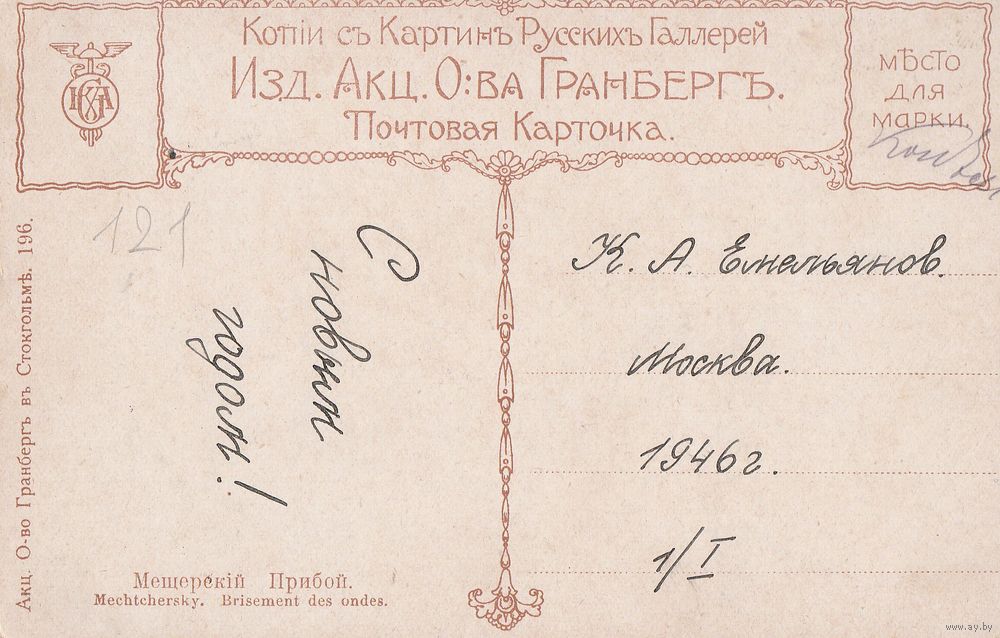 Копіи съ Картинъ Русскихъ Галлерей
Изд. Акц. О:ва Гранбергъ.
Почтовая Карточка.
мѣсто
для
марки.
121
С
новым
годом!
К. А. Емельянов.
Москва.
1946г.
1/I
Акц. О-во Гранбергъ въ Стокгольмѣ. 196.
Мещерскій Прибой.
Mechtchersky. Brisement des ondes.
www.ay.by